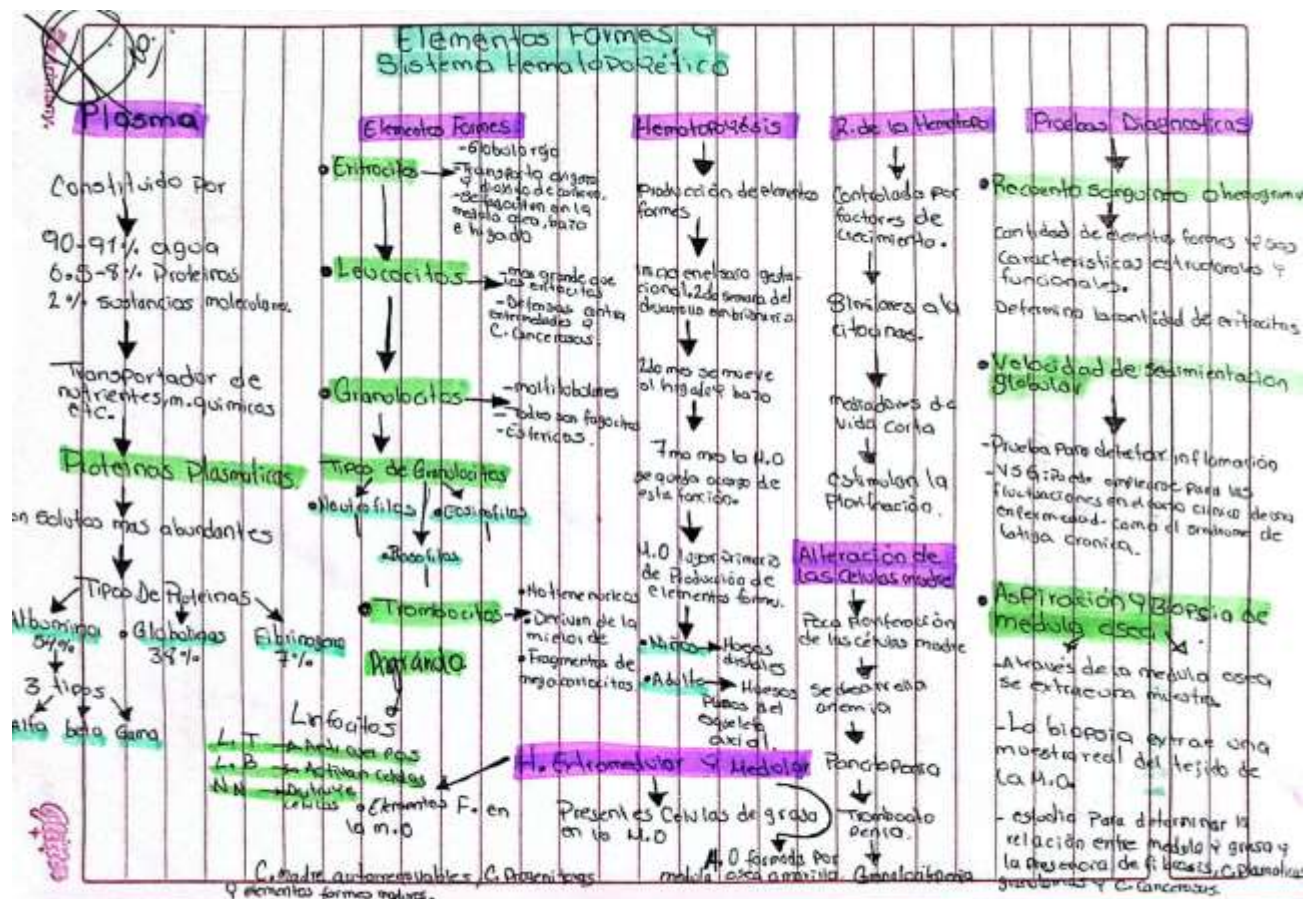 Elementos Formes, y
Sistema Hematopoyético
Plasma
Constituido por
90-91% agua
6.5-8% Proteinas
2% sustancias moleculares.
Transportador de
nutrientes, m. quimicos
etc.
Proteinas Plasmaticas
on solutos mas abundantes
Tipos De Proteinas
Albumina
54%
• Globulinas
38%
Fibrinogeno
7%
3 tipos
Alfa beta Gama
Elementos Formes
• Eritrocitos
-Globulo rojo
-Transporta oxigeno
y dioxido de carbono.
medula osea, bazo
e higado
• Leucocitos
-mas grande que
los eritrocitos
-Defensas contra
enfermedades y
C. Cancerosas.
• Granulocitos
-multilobulares
-Todos son fagocitos
-Esfericos.
Tipos de Granulocitos
• Neutrofilos
• Eosinofilos
• Basofilos
• Trombocitos
• No tiene nucleos
• Derivan de la
mieloide
• Fragmentos de
megacariocitos.
Agrando
Linfocitos
L. T
L. B → Activan celulas
N N → Destruye
celulas
Hematopoyésis
Producción de elementos
formes
Inicia en el saco gesta-
cional, 2da semana del
desarrollo embrionario
2do mes se mueve
al higado y bazo
7mo mes la M.O
se queda a cargo de
esta función.
M.O lugar primario
de Producción de
elementos formes.
• Niños → Huesos
distales
• Adulto → Huesos
planos del
esqueleto
axial.
R. de la Hematopo
Controlada por
factores de
crecimiento.
Similares a la
citocinas.
mediadores de
vida corta
estimulan la
Alteración de
las Células madre
Poca proliferación
de las células madre
se desarrolla
anemia
Pancitopenia
Trombocito
penia.
Granulocitopenia
H. Extramedular y Medular
• Elementos F. en
la m.o
Present es Células de grasa
en la M.O
M.O formada por
medula osea amarilla
C. madre autorrenovables, C. Progenitoras
y elementos formes maduros.
Pruebas Diagnosticas
• Recuento sanguineo o hemograma
cantidad de elementos formes y sus
caracteristicas estructurales y
funcionales.
Determina la cantidad de eritrocitos
• Velocidad de sedimentacion
globular
-Prueba para detectar inflamación
-VSG: Puede emplearse para las
fluctuaciones en el curso clinico de una
enfermedad. como el sindrome de
fatiga cronica.
• Aspiración y Biopsia de
medula osea
-Através de la medula osea
se extrae una muestra.
-La biopsia extrae una
muestra real del tejido de
la M.O.
- estudio Para determinar la
relación entre medula y grasa y
la presencia de fibrosis, C. Plamaticas
granulomas y C. Cancerosas.